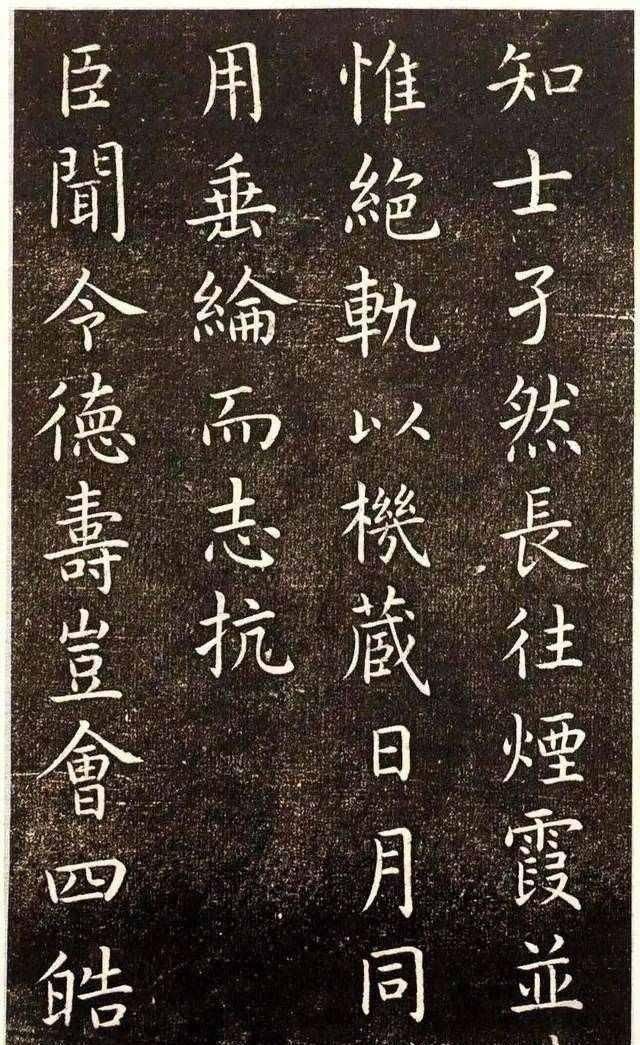 知士孑然長往煙霞並
惟絕軌以機蔵日月同
用垂綸而志抗
臣聞令徳壽豈會四皓